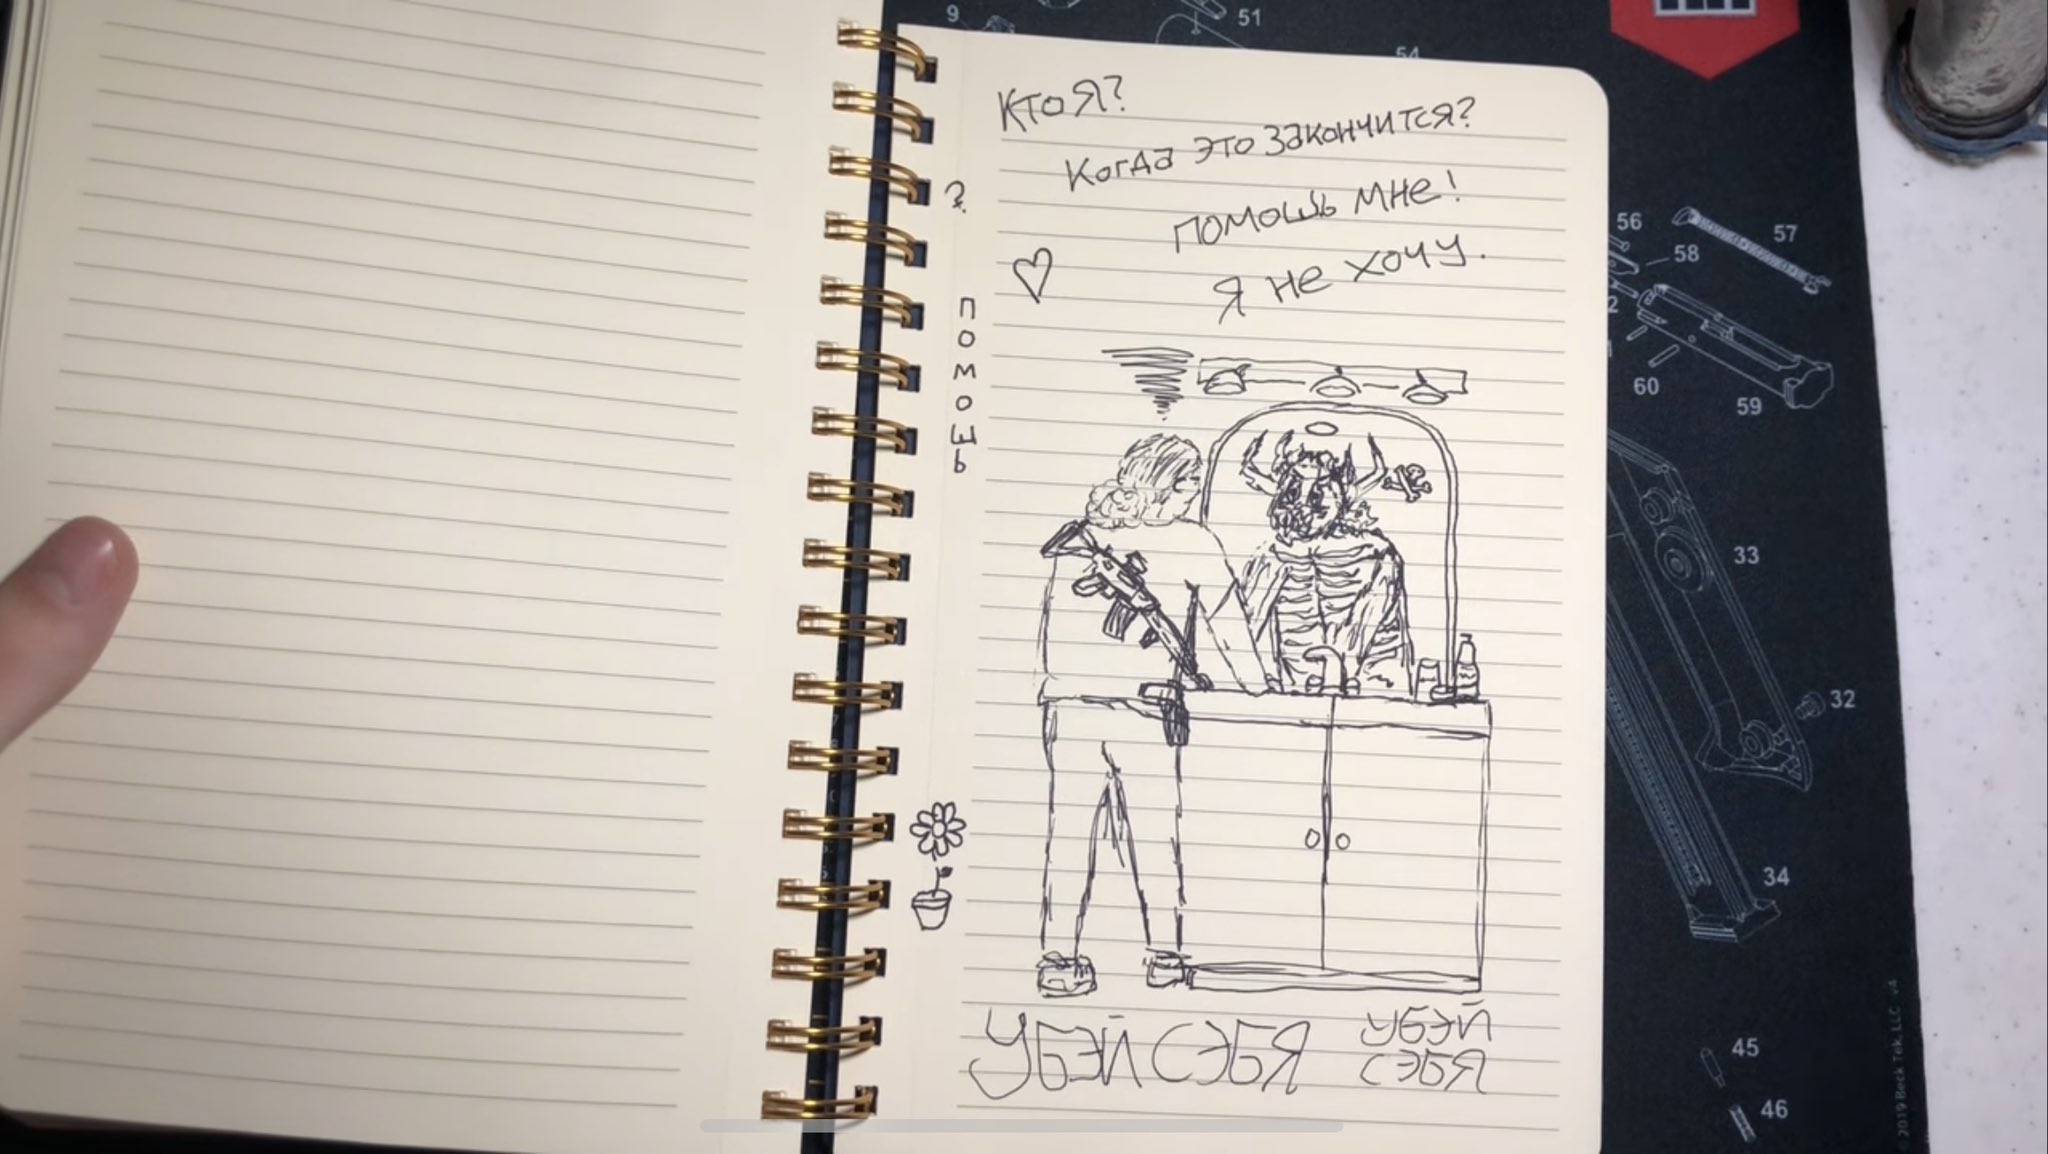 Кто я?
Когда это закончится?
помошь мне!
я не хочу.
?
помошь
УБЭЙ СЭБЯ
УБЭЙ
СЭБЯ
9
51
54
56
57
58
60
59
33
32
34
45
46
© 2019 Beck Tek, LLC v4